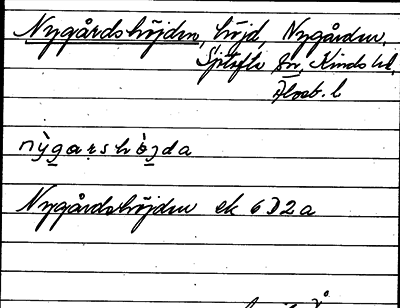 Nygårdshöjden, höjd, Nygården,
Sjötofta sn, Kinds hd,
Älvsb. l
nỳgarshö̀jda
Nygårdshöjden ek 6D2a